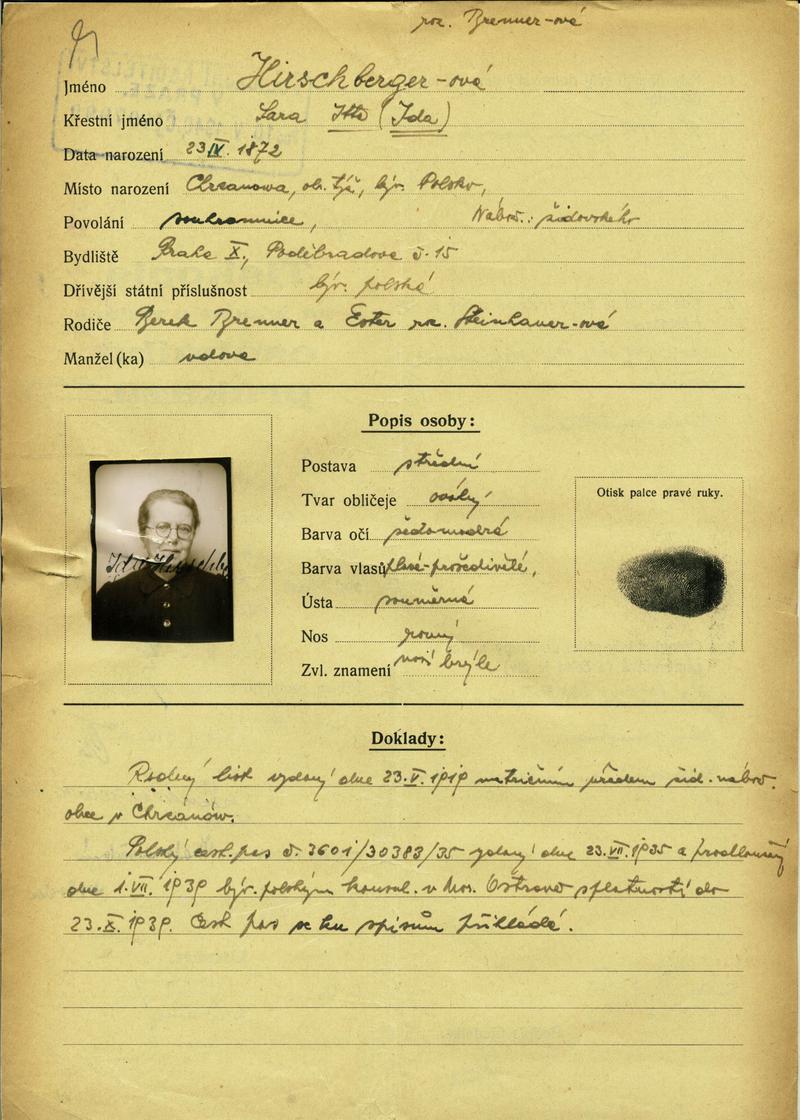 roz. Brenner-ová
Jméno Hirschberger-ová
Křestní jméno Sara Itta (Ida)
Data narození 23 IV. 1872
Místo narození Chrzanowa, ob. týž, býv. Polsko,
Povolání soukromnice, Nábož.: židovského
Bydliště Praha X., Poděbradova č. 15
Dřívější státní příslušnost býv. polská
Rodiče Berek Brenner a Ester roz. Steinhauer-ová
Manžel(ka) vdova
Popis osoby:
Postava střední
Tvar obličeje oválný
Barva očí šedomodrá
Barva vlasů plavé-prošedivělé,
Ústa souměrná
Nos rovný
Zvl. znamení nosí brýle
Otisk palce pravé ruky.
Ida Hirschb
Doklady:
Rodný list vydaný dne 23. V. 1919 matričním úřadem žid. nábož.
obce v Chrzanów.
Polský cest. pas č. 3601/30383/35 vydaný dne 23. VII. 1935 a prodloužený
dne 1. VII. 1939 býv. polským konsul. v Mor. Ostravě splatností do
23. X. 1939. Cest pas se ku spisům přikládá.